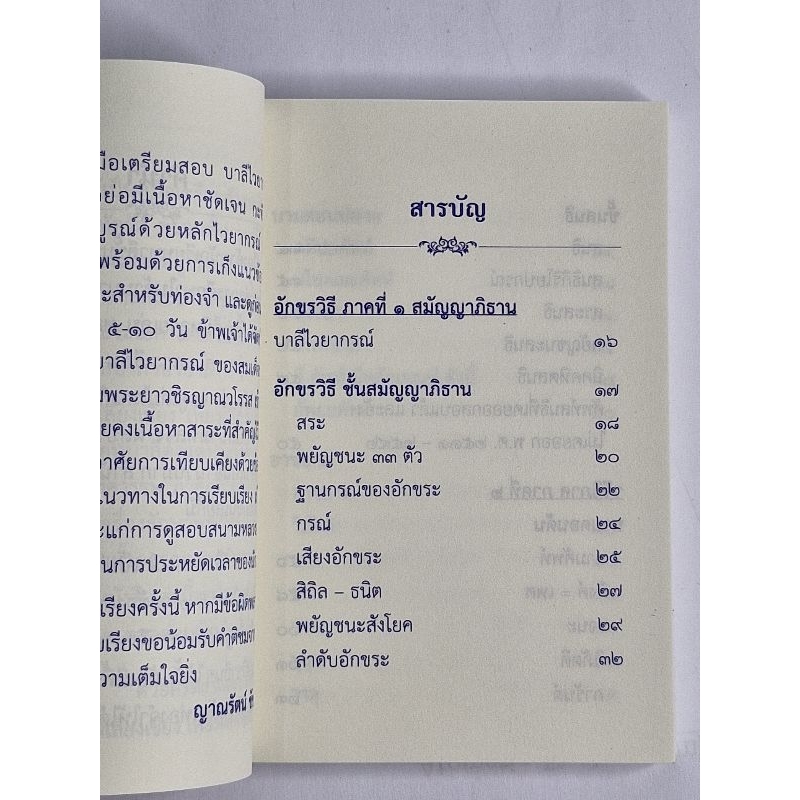 มือเตรียมสอบ บาลีไวยา
ย่อมีเนื้อหาชัดเจน
บูรณ์ด้วยหลักไวยากรณ์
พร้อมด้วยการเก็งแนวข้อ
ะสำหรับท่องจำ และดูก่อน
๕-๑๐ วัน ข้าพเจ้าได้
บาลีไวยากรณ์ ของสมเด็จ
มพระยาวชิรญาณวโรรส
ยคงเนื้อหาสาระที่สำคัญ
อาศัยการเทียบเคียงด้วย
แนวทางในการเรียบเรียง
ะแก่การดูสอบสนามหลวง
นการประหยัดเวลาของ
เรียงครั้งนี้ หากมีข้อผิด
บเรียงขอน้อมรับคำติชม
วามเต็มใจยิ่ง
ญาณรัตน์
สารบัญ
อักขรวิธี ภาคที่ ๑ สมัญญาภิธาน
บาลีไวยากรณ์ ๑๖
อักขรวิธี ชั้นสมัญญาภิธาน ๑๗
สระ ๑๘
พยัญชนะ ๓๓ ตัว ๒๐
ฐานกรณ์ของอักขระ ๒๒
กรณ์ ๒๔
เสียงอักขระ ๒๕
สิถิล – ธนิต ๒๗
พยัญชนะสังโยค ๒๙
ลำดับอักขระ ๓๒